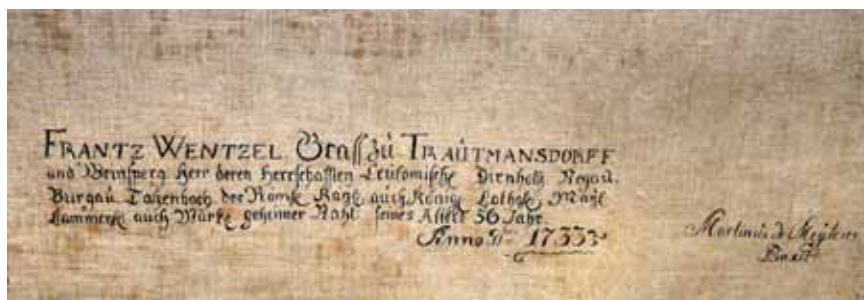 FRANTZ WENTZEL Graff zu TRAUTMANSDORFF
und Weinsperg Herr deren Herrschafften Leutomischl Dirnholtz Negau
Burgau Tatzenbach der auch König Cathol May
Cammerer auch Würkl geheimer Raht seines Alters 56 Jahr.
Anno D 1733
Martinus de Meytens
Pinxit